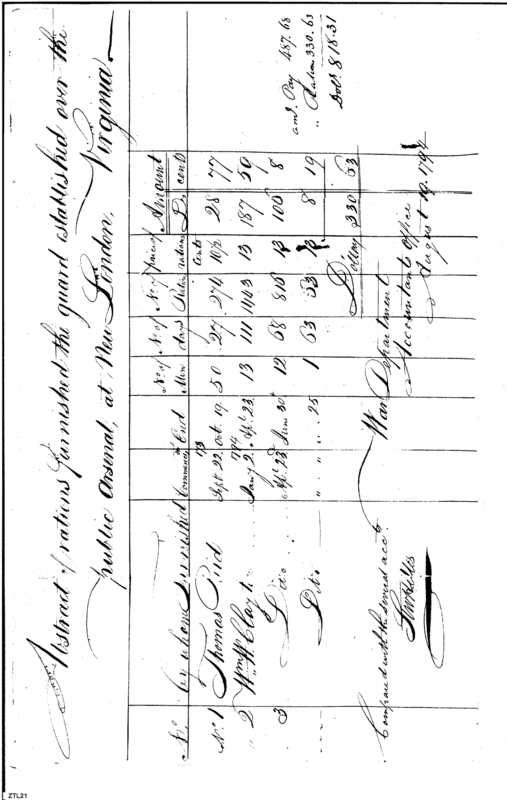 Abstract of rations furnished the guard established over the
public Arsenal, at New London, Virginia.
No. by whom furnished Commencg End No. of Men No. of days No. of Rations price of rations Amount D. cents
No. 1 Thomas Reid 93 Sept 22. Oct. 19. 50 27 274 10½ Cents 28 77
" 2 Wm. W. Clayto 1794 Jany 2. Apl. 23. 13 111 1443 13 187 59
3 Dito Apl. 23 June 30 12 68 816 13 106 8
Dito " " " 25 1 63 63 13 8 19
Dollars 330 63
amt. Pay 487.68
" Ration 330.63
Doll. 818.31
War Department
Accountants Office
August 19. 1794
Compared with the several accts.